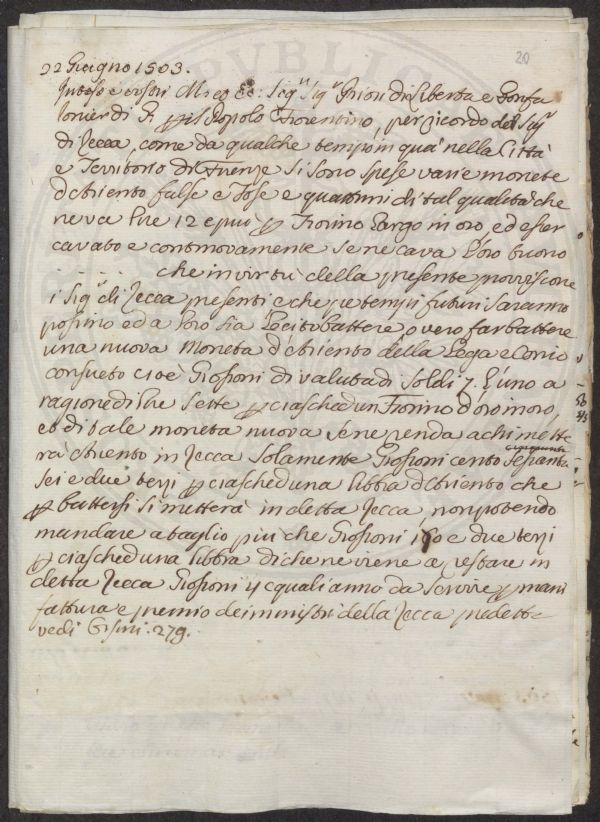 20
22 Giugno 1503.
Inteso e vostri Mag. ec: Sig.ri Sig.ri Priori di Libertà e Gonfa
lonier di p il Popolo Fiorentino, per ricordo dei Sig.ri
di Zecca, come da qualche tempo in quà nella Città
e Territorio di Firenze si sono spese varie monete
d'Ariento false e tose e quattrini di tal qualità che
ne va lire 12 e più p Fiorino Largo in oro, ed esser
cavato e continovamente se ne cava l'oro buono
. . . . . . che in virtù della presente provvisione
i Sig.ri di Zecca presenti e che pe tempi futuri saranno
possino ed a loro sia lecito battere o vero far battere
una nuova Moneta d'Ariento della Lega e Conio
consueto cioè Grossoni di valuta di Soldi 7. l'uno a
ragione di lire sette p ciaschedun Fiorino d'oro in oro,
et di tale moneta nuova se ne renda a chi mette
rà Ariento in Zecca solamente Grossoni cento sessanta
cinquanta
sei e due terzi p ciascheduna libbra d'Ariento che
p battersi si metterà in detta Zecca non potendo
mandare a taglio più che Grossoni 160 e due terzi
p ciascheduna libbra di che ne viene a restare in
detta Zecca Grossoni 4 e quali anno da servire p mani
fattura e premio de i ministri della Zecca predetta
vedi 279.